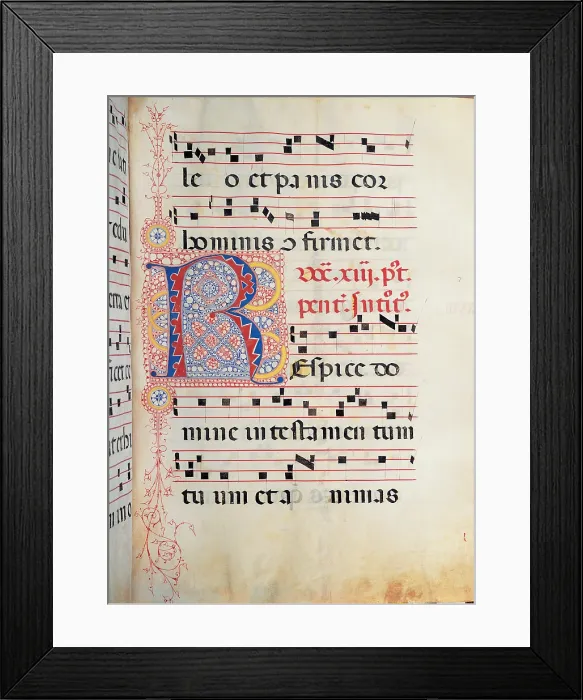 le o et panis cor
hominis ɔfirmet.
Doc̃. xiij. pꝰt.
pent̃. Intꝛoitꝰ.
REspice do
mine in testamen tum
tu um et a nimas